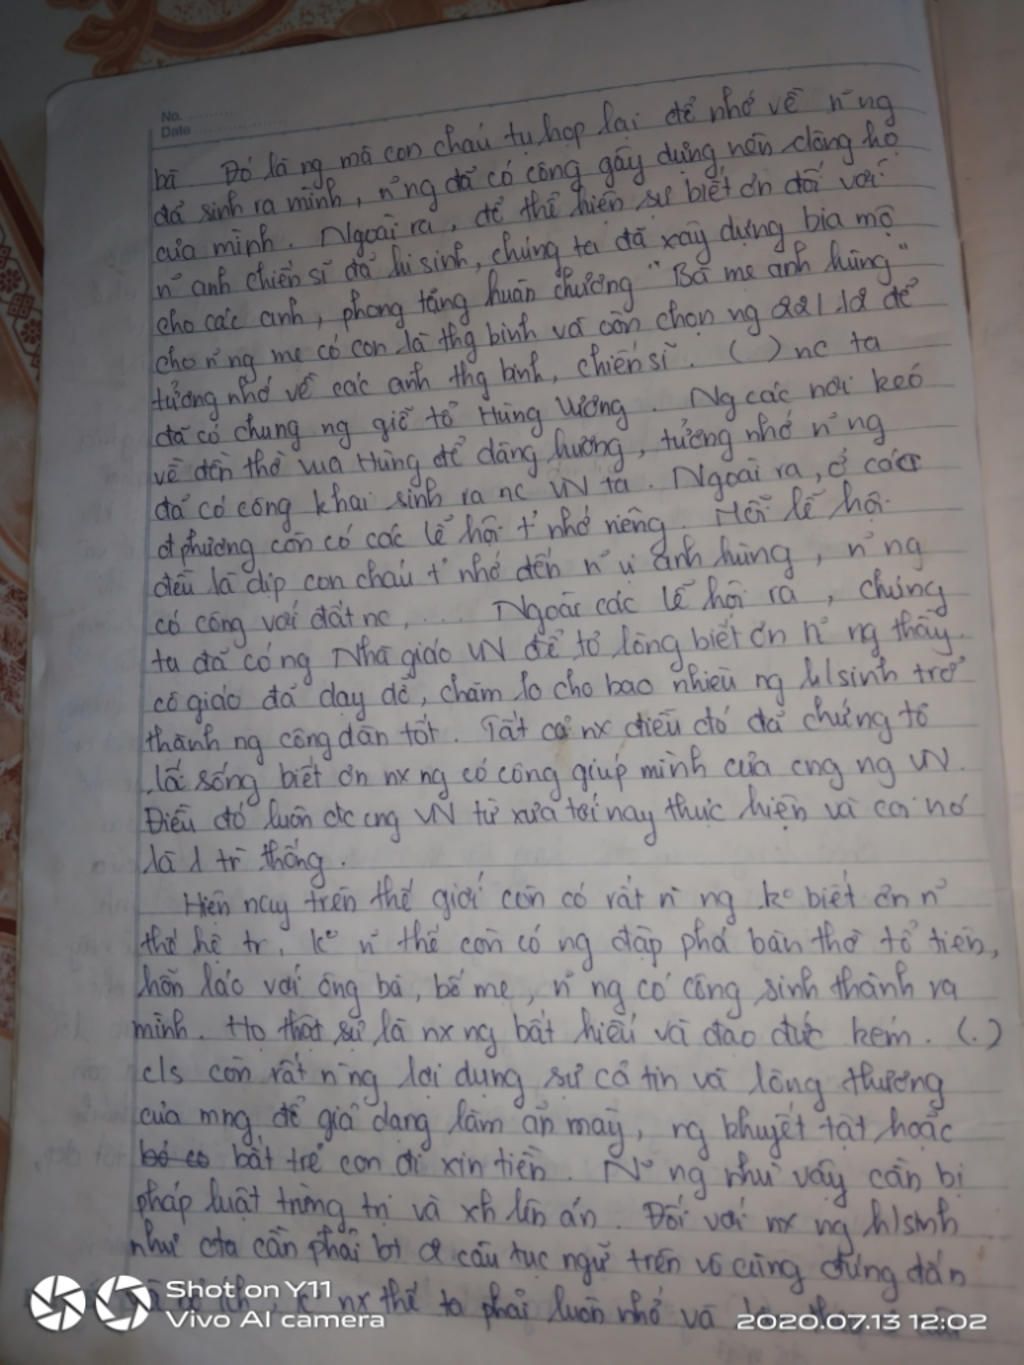 No.
Date
bà. Đó là ng mà con cháu tụ họp lại để nhớ về n~ ng
đã sinh ra mình, n~ ng đã có công gây dựng nên dòng họ
của mình. Ngoài ra, để thể hiện sự biết ơn đối với
n~ anh chiến sĩ đã hi sinh, chúng ta đã xây dựng bia mộ
cho các anh, phong tặng huân chương "Bà mẹ anh hùng"
cho n~ ng mẹ có con là thg binh và còn chọn ng 22/12 để
tưởng nhớ về các anh thg binh, chiến sĩ. ( ) nc ta
đã có chung ng giỗ tổ Hùng Vương. Ng các nơi kéo
về đền thờ vua Hùng để dâng hương, tưởng nhớ n~ ng
đã có công khai sinh ra nc VN ta. Ngoài ra, ở các
đphương còn có các lễ hội t' nhớ riêng. Mỗi lễ hội
đều là dịp con cháu t' nhớ đến n~ vị anh hùng, n~ ng
có công với đất nc, ... Ngoài các lễ hội ra, chúng
ta đã có ng Nhà giáo VN để tỏ lòng biết ơn n~ ng thầy
cô giáo đã dạy dỗ, chăm lo cho bao nhiêu ng h/sinh trở
thành ng công dân tốt. Tất cả nx điều đó đã chứng tỏ
lối sống biết ơn nx ng có công giúp mình của cng ng VN.
Điều đó luôn đc cng VN từ xưa tới nay thực hiện và coi nó
là 1 tr' thống.
Hiện nay trên thế giới còn có rất n` ng k° biết ơn n~
thế hệ tr', k° n~ thế còn có ng đập phá bàn thờ tổ tiên,
hỗn láo với ông bà, bố mẹ, n~ ng có công sinh thành ra
mình. Họ thật sự là nx ng bất hiếu và đạo đức kém. (.)
c/s còn rất n` ng lợi dụng sự cả tin và lòng thương
của mng để giả dạng làm ăn mày, ng khuyết tật hoặc
bắt trẻ con đi xin tiền. N~ ng như vậy cần bị
pháp luật trừng trị và xh lên án. Đối với nx ng h/sinh
như cta cần phải bt đc câu tục ngữ trên vô cùng đúng đắn
k° nx thế ta phải luôn nhớ và
Shot on Y11
Vivo AI camera
2020.07.13 12:02